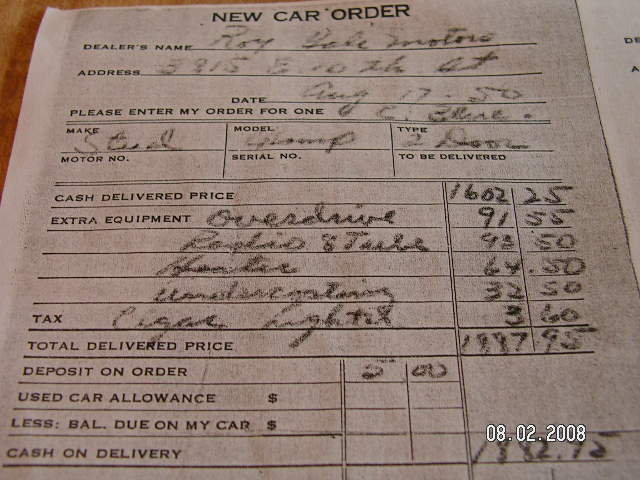 NEW CAR ORDER
DEALER'S NAME Roy Motors
ADDRESS 3815 E. 10th St
DATE Aug 17-50
PLEASE ENTER MY ORDER FOR ONE C. Blue.
MAKE MODEL TYPE
Stud Champ 2 Door
MOTOR NO. SERIAL NO. TO BE DELIVERED
CASH DELIVERED PRICE 1602 25
EXTRA EQUIPMENT Overdrive 91 55
Radio 8 Tube 93 50
Heater 64.50
Undercoating 32 50
TAX Cigar Lighter 3 60
TOTAL DELIVERED PRICE 1887 95
DEPOSIT ON ORDER 5 00
USED CAR ALLOWANCE $
LESS: BAL. DUE ON MY CAR $
CASH ON DELIVERY
08.02.2008